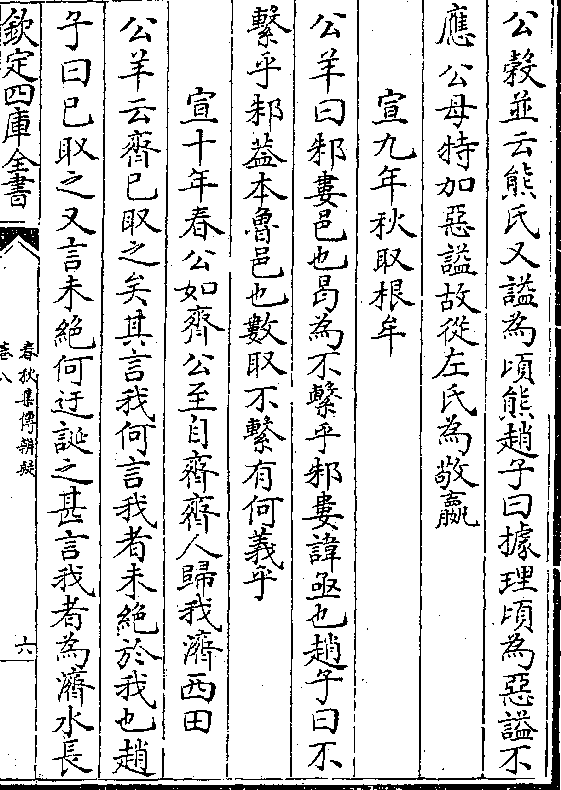 公穀並云熊氏又謚為頃熊趙子曰據理頃為惡謚不
應公母特加惡謚故從左氏為敬嬴
宣九年秋取根牟
公羊曰邾婁邑也曷為不繫乎邾婁諱亟也趙子曰不
繫乎邾葢本魯邑也數取不繫有何義乎
宣十年春公如齊公至自齊齊人歸我濟西田
公羊云齊已取之矣其言我何言我者未絶於我也趙
子曰已取之又言未絶何迂誕之甚言我者為濟水長
欽定四庫全書
春秋集傳辨疑
卷八
六